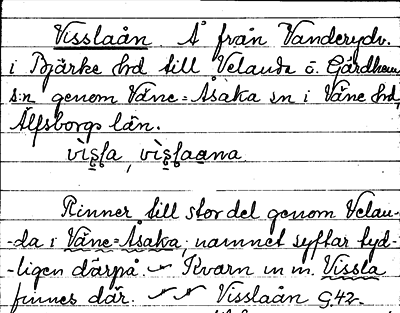 Visslaån. Å från Vanderydv.
i Bjärke hd till Velanda o. Gärdhem
s:n genom Väne-Åsaka sn i Väne hd,
Älfsborgs län.
vìsla, vìslaana.
Rinner till stor del genom Velan-
-da i Väne-Åsaka; namnet syftar tyd-
-ligen därpå. Kvarn m m. Vissla
finnes där. Visslaån G.42.